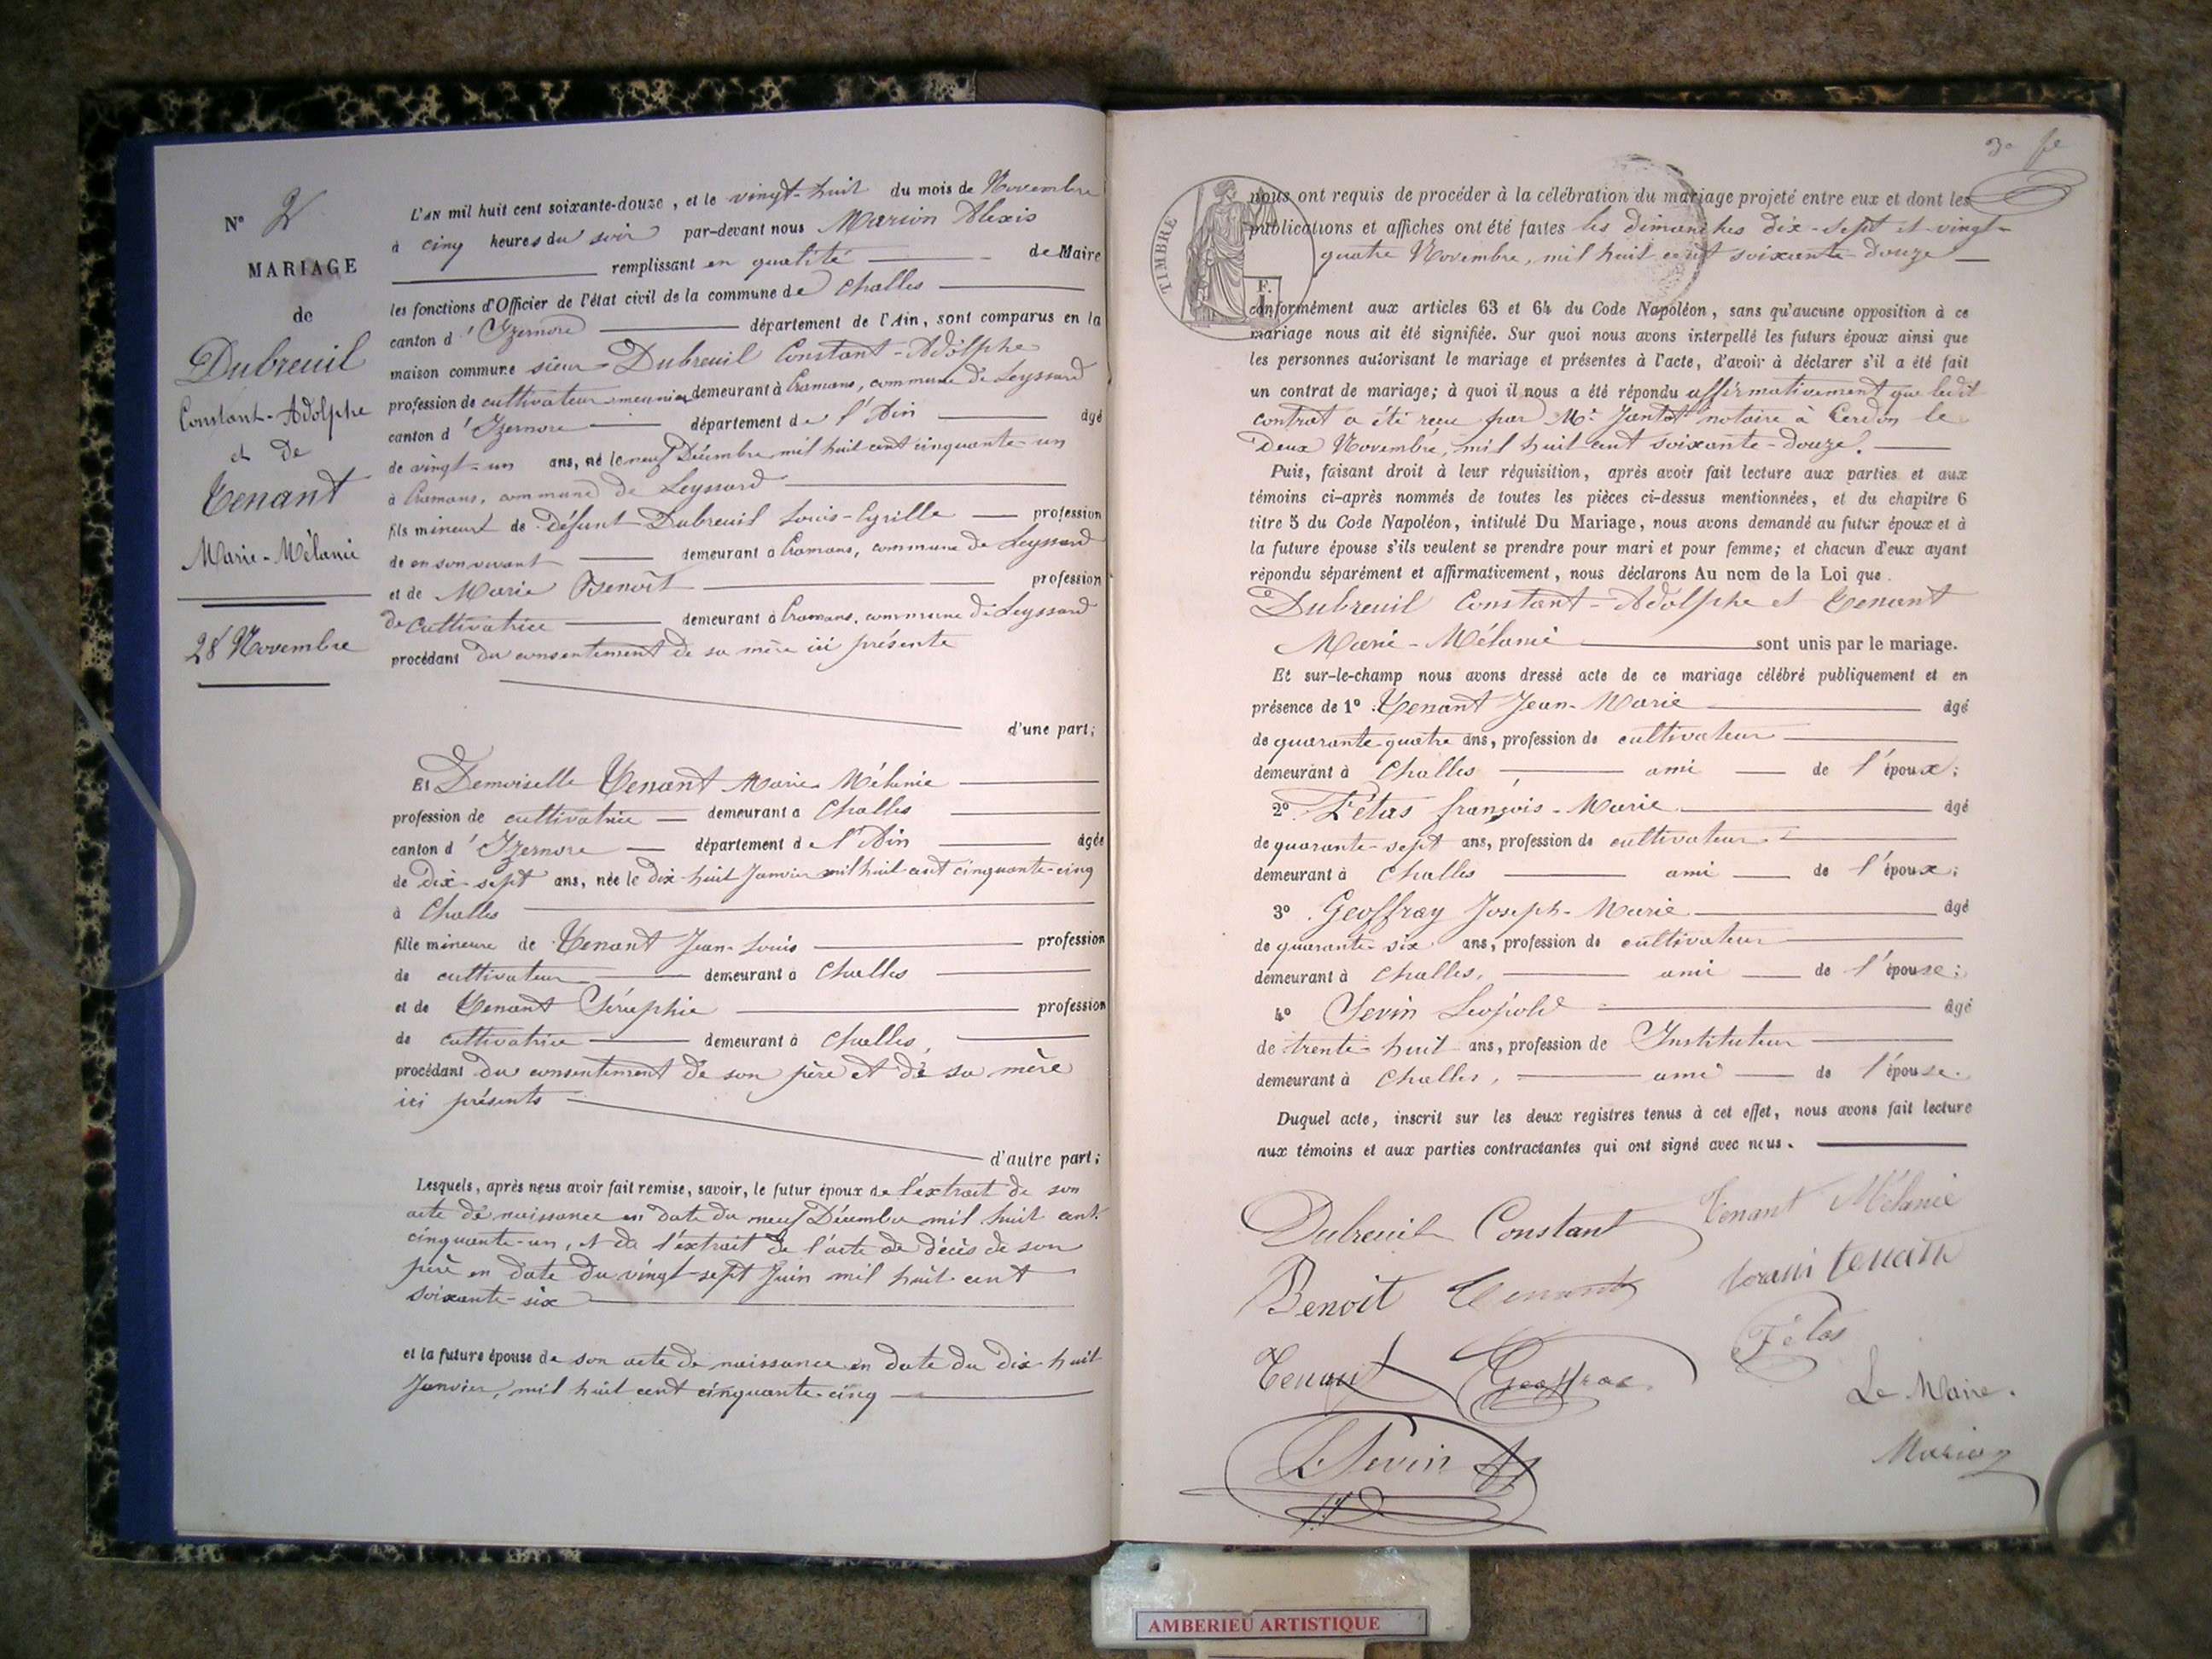 N° 2
MARIAGE
de
Dubreuil
Constant-Adolphe
et De
Tenant
Marie-Mélanie
28 Novembre
L'AN mil huit cent soixante-douze, et le vingt-huit du mois de Novembre
à cinq heures du soir par-devant nous Marion Alexis
remplissant en qualité de Maire
les fonctions d'Officier de l'état civil de la commune de Challes
canton d'Izernore département de l'Ain, sont comparus en la
maison commune sieur Dubreuil Constant-Adolphe
profession de cultivateur meunier demeurant à Cramans, commune de Leyssard
canton d'Izernore département de l'Ain âgé
de vingt-un ans, né le neuf Décembre mil huit cent cinquante-un
à Cramans, commune de Leyssard
fils mineur de défunt Dubreuil Louis-Cyrille profession
de en son vivant demeurant à Cramans, commune de Leyssard
et de Marie Benoît profession
De cultivatrice demeurant à Cramans, commune de Leyssard
procédant du consentement de sa mère ici présente
d'une part;
Et Demoiselle Tenant Marie Mélanie
profession de cultivatrice demeurant à Challes
canton d'Izernore département de l'Ain âgée
de Dix-sept ans, née le Dix-huit Janvier mil huit cent cinquante-cinq
à Challes
fille mineure de Tenant Jean-Louis profession
de cultivateur demeurant à Challes
et de Tenant Séraphie profession
de cultivatrice demeurant à Challes,
procédant du consentement de son père et de sa mère
ici présents
d'autre part;
Lesquels, après nous avoir fait remise, savoir, le futur époux de l'extrait de son
acte de naissance en date du neuf Décembre mil huit cent
cinquante-un, et de l'extrait de l'acte de décès de son
père en date du vingt-sept Juin mil huit cent
soixante-six
et la future épouse de son acte de naissance en date du dix huit
Janvier, mil huit cent cinquante-cinq
TIMBRE
nous ont requis de procéder à la célébration du mariage projeté entre eux et dont les
publications et affiches ont été faites les dimanches dix-sept et vingt-
quatre Novembre, mil huit cent soixante-douze
conformément aux articles 63 et 64 du Code Napoléon, sans qu'aucune opposition à ce
mariage nous ait été signifiée. Sur quoi nous avons interpellé les futurs époux ainsi que
les personnes autorisant le mariage et présentes à l'acte, d'avoir à déclarer s'il a été fait
un contrat de mariage; à quoi il nous a été répondu affirmativement que ledit
contrat a été reçu par Me Jantet notaire à Cerdon le
Deux Novembre, mil huit cent soixante-douze.
Puis, faisant droit à leur réquisition, après avoir fait lecture aux parties et aux
témoins ci-après nommés de toutes les pièces ci-dessus mentionnées, et du chapitre 6
titre 5 du Code Napoléon, intitulé Du Mariage, nous avons demandé au futur époux et à
la future épouse s'ils veulent se prendre pour mari et pour femme; et chacun d'eux ayant
répondu séparément et affirmativement, nous déclarons Au nom de la Loi que
Dubreuil Constant-Adolphe et Tenant
Marie-Mélanie sont unis par le mariage.
Et sur-le-champ nous avons dressé acte de ce mariage célébré publiquement et en
présence de 1° Tenant Jean-Marie âgé
de quarante-quatre ans, profession de cultivateur
demeurant à Challes, ami de l'époux;
2° Fétas françois-Marie âgé
de quarante-sept ans, profession de cultivateur
demeurant à Challes ami de l'époux;
3° Geoffray Joseph-Marie âgé
de quarante-six ans, profession de cultivateur
demeurant à Challes, ami de l'épouse;
4° Sevin Léopold âgé
de trente-huit ans, profession de Instituteur
demeurant à Challes, ami de l'épouse.
Duquel acte, inscrit sur les deux registres tenus à cet effet, nous avons fait lecture
aux témoins et aux parties contractantes qui ont signé avec nous.
Dubreuil Constant Tenant Mélanie
Benoit Tenant tenant
Tenant Geoffrae Fétas
Le Maire.
L Sevin
Marion
AMBERIEU ARTISTIQUE